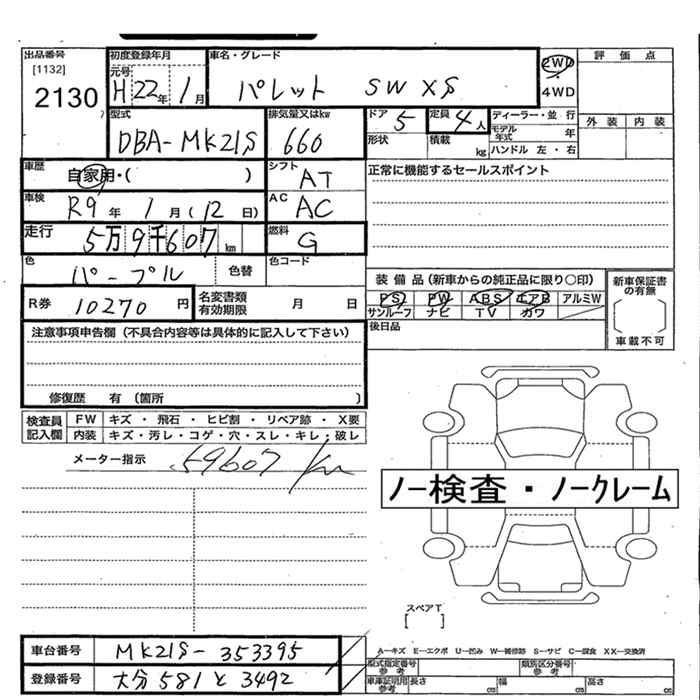 出品番号 初度登録年月 車名・グレード 2WD 評価点
[1132] 元号 H22年1月 パレット SW XS 4WD
2130 型式 排気量又はkw ドア 5 定員 4人 ディーラー・並行 外装 内装
DBA-MK21S 660 形状 積載 kg モデル年式 年
ハンドル 左・右
車歴 自家用・( ) シフト AT 正常に機能するセールスポイント
車検 R9年1月(12日) AC AC
走行 5万9千607km 燃料 G
色 パープル 色替 色コード 装備品(新車からの純正品に限り○印) 新車保証書の有無
R券 10270円 名変書類有効期限 月 日 PS PW ABS エアB アルミW
サンルーフ ナビ TV カワ
注意事項申告欄(不具合内容等は具体的に記入して下さい) 後日品 車載不可
修復歴 有(箇所 )
検査員記入欄 FW キズ・飛石・ヒビ割・リペア跡・X要
内装 キズ・汚レ・コゲ・穴・スレ・キレ・破レ
メーター指示 59607km
ノー検査・ノークレーム
スペアT
[ ]
車台番号 MK21S-353395 A―キズ E―エクボ U―凹み W―補修跡 S―サビ C―腐食 XX―交換済
型式指定番号参考 類別区分番号参考
登録番号 大分581と3492 車庫証明用参考 長さ cm 幅 cm 高さ cm